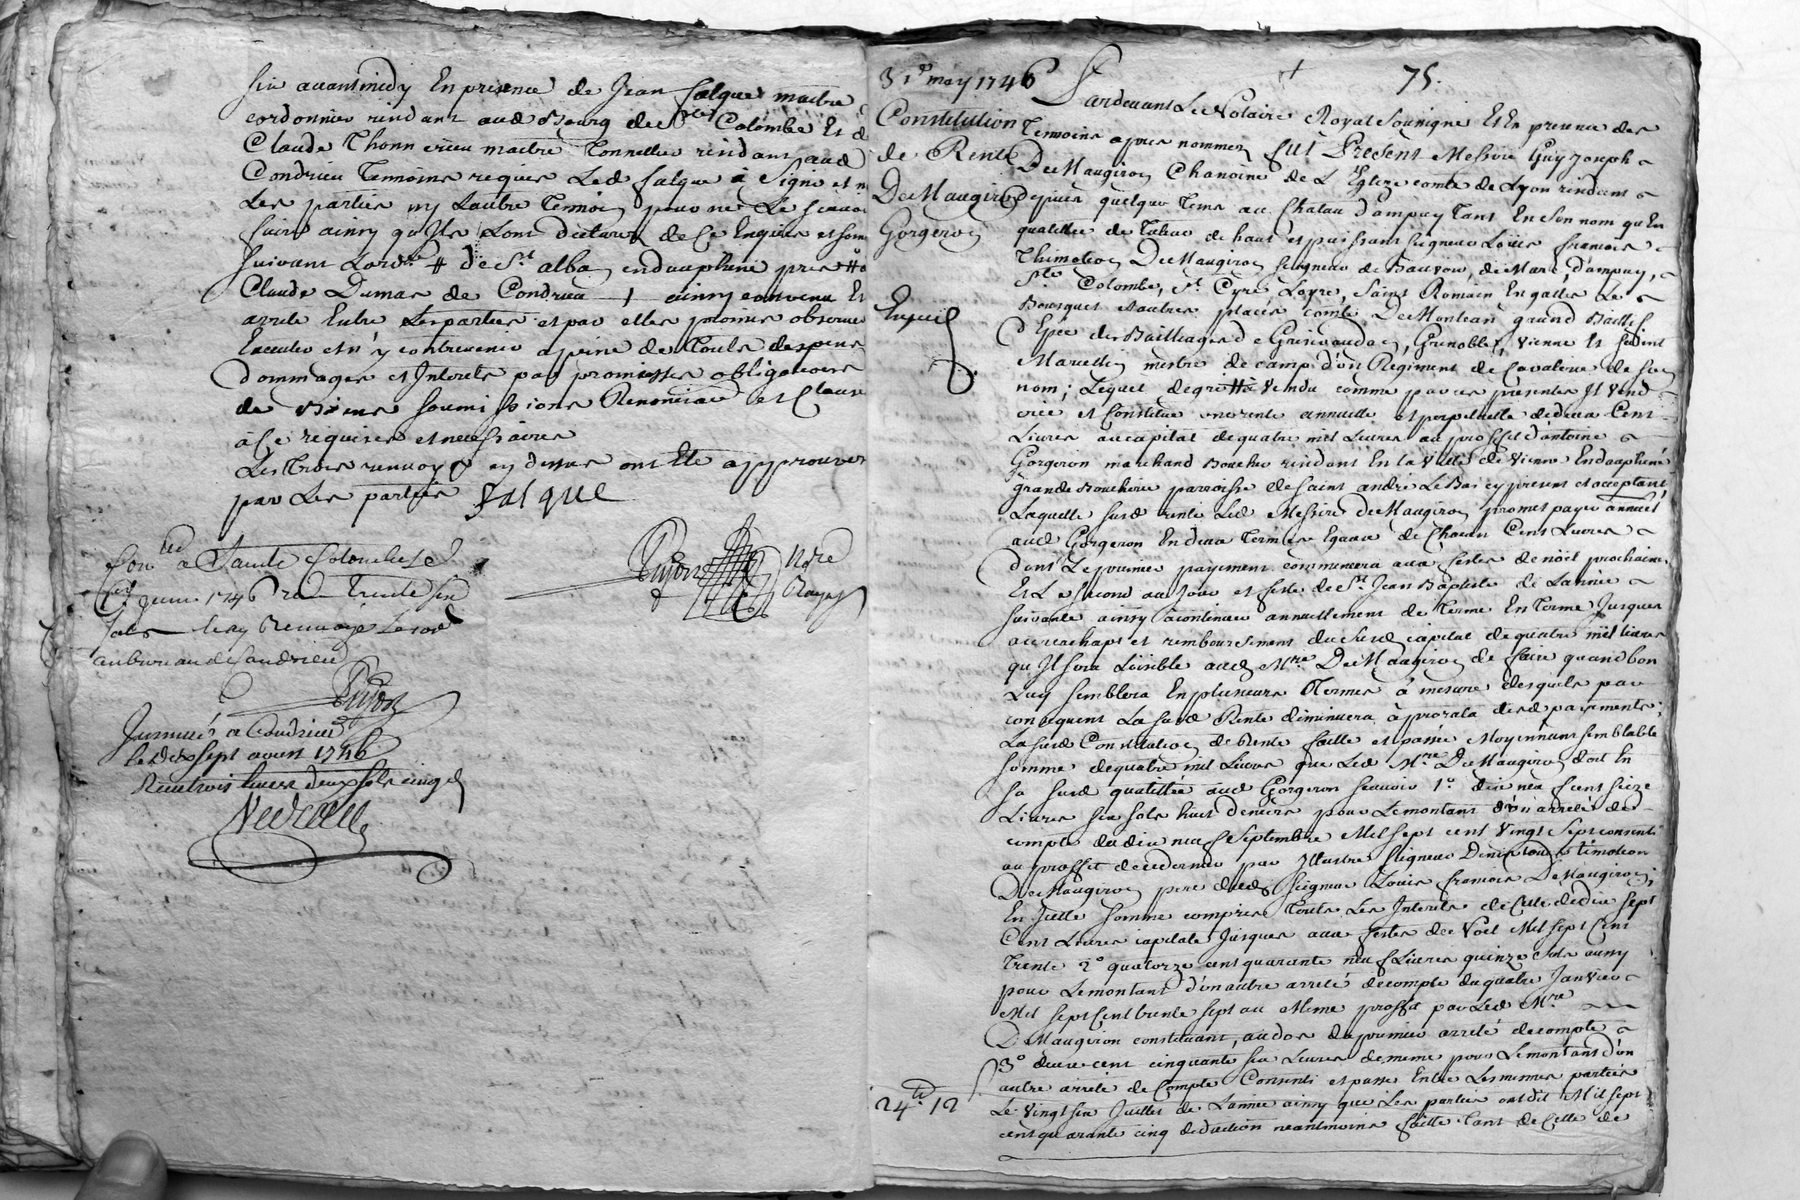 six avant midy En presence de Jean falque maitre
cordonnier residant aud Bourg de Ste Colombe Et de
Claude Thonnerieu maitre Tonnellier residant aud
Condrieu Temoins requis Led falque a signé et non
Les parties ny Lautre Temoin pour ne Le scavoir
faire ainsy qu'Ils Lont declaré de ce Enquis et somm
suivant Lordce # de St alban en dauphiné
Claude Dumas de Condrieu ainsy convenu Et
arreté Entre Les parties et par elles promis observer
Executer et n'y contrevenir a peine de touts despens
dommages et Interets par promesses obligations
de Biens soumissions Renonciaon et Clauses
à Ce requises et necessaires
Les trois renvoys cy dessus ont Eté approuvés
par Les parties falque
Conlé a Sainte Colombe Le
juin 1746 Rd Trente six
sols
au bureau de Condrieu
Dujon Notre
Royal
Dujon
Insinué a Condrieu
le dix sept aoust 1746
Reçu trois livres deux sols cinq d
31e may 1746
Constitution
de Rente
De Maugiron
Gorgeron
Expedié
24lt 12
75.
Pardevant Le Notaire Royal Soussigné Et En presence des
Temoins apres nommez fut Present Messire Guy Joseph
De Maugiron Chanoine de L'Eglize comte de Lyon residant
depuis quelque tems au Chatau d'ampuy Tant En Son nom qu'En
qualittée de de haut et puissant seigneur Louis francois
Thimoleon De Maugiron seigneur de Beauvoir, de Marc, d'ampuy,
Ste Colombe, St Cyr, Loyre, Saint Romain En galles Le
Bousquet et autres places comte De Montleans grand Baillif
d'Epée des Bailliages de Graisivaudan, Grenoble, Vienne Et Saint
Marcellin mestre de camp d'un Regiment de Cavalerie de son
nom; Lequel de gré # a vendu comme par ces presentes Il vend
crée et Constitue une rente annuelle et perpetuelle de deux Cent
Livres au capital de quatre mil Livres au proffit d'antoine
Gorgeron marchand Boucher residant En la ville de Vienne En dauphiné
grande Boucherie parroisse de saint andré Le Bas cy present et acceptant
Laquelle susd rente Led Messire De Maugiron promet payer annuelt
aud Gorgeron En deux Termes Egaux de Chacun Cent Livres
dont Le premier payement commencera aux festes de noël prochaines
Et Le second au Jour et feste de St Jean Baptiste de L'année
suivante ainsy a continuer annuellement de Terme En Terme Jusques
au rachapt et remboursement du susd capital de quatre mil livres
qu'Il sera Loisible aud Mre De Maugiron de faire quand bon
Luy semblera En plusieurs Termes à mesure desquels par
consequent La susd Rente diminuera à prorata desd payements;
La susd Constitution de Rente faitte et passée Moyennant semblable
somme de quatre mil Livres que Led Mre De Maugiron doit En
sa susd qualittée aud Gorgeron scavoir 1° dix neuf cent seize
Livres six sols huit deniers pour Le montant d'un arrété de
compte du dix neuf Septembre Mil sept cent Vingt Sept consenti
au proffit de ce dernier par Illustre seigneur timoleon
De Maugiron pere dud seigneur Louis francois De Maugiron;
En Icelle somme compris touts Les Interets de celle de dix sept
Cent Livres capitale Jusques aux festes de Noël Mil sept Cent
Trente 2° quatorze cent quarante neuf Livres quinze Sols aussy
pour Le montant d'un autre arrété de compte du quatre Janvier
Mil sept Cent trente sept au Meme proffit par Led Mre
De Maugiron constituant, au dos du premier arrété de compte
3° deux cent cinquante six Livres de meme pour Le montant d'un
autre arrété de Compte Consenti et passé Entre Les memes parties
Le Vingt six Juillet de L'année ainsy que Les parties ont dit Mil sept
cent quarante cinq deduction neantmoins faitte tant de Celle de